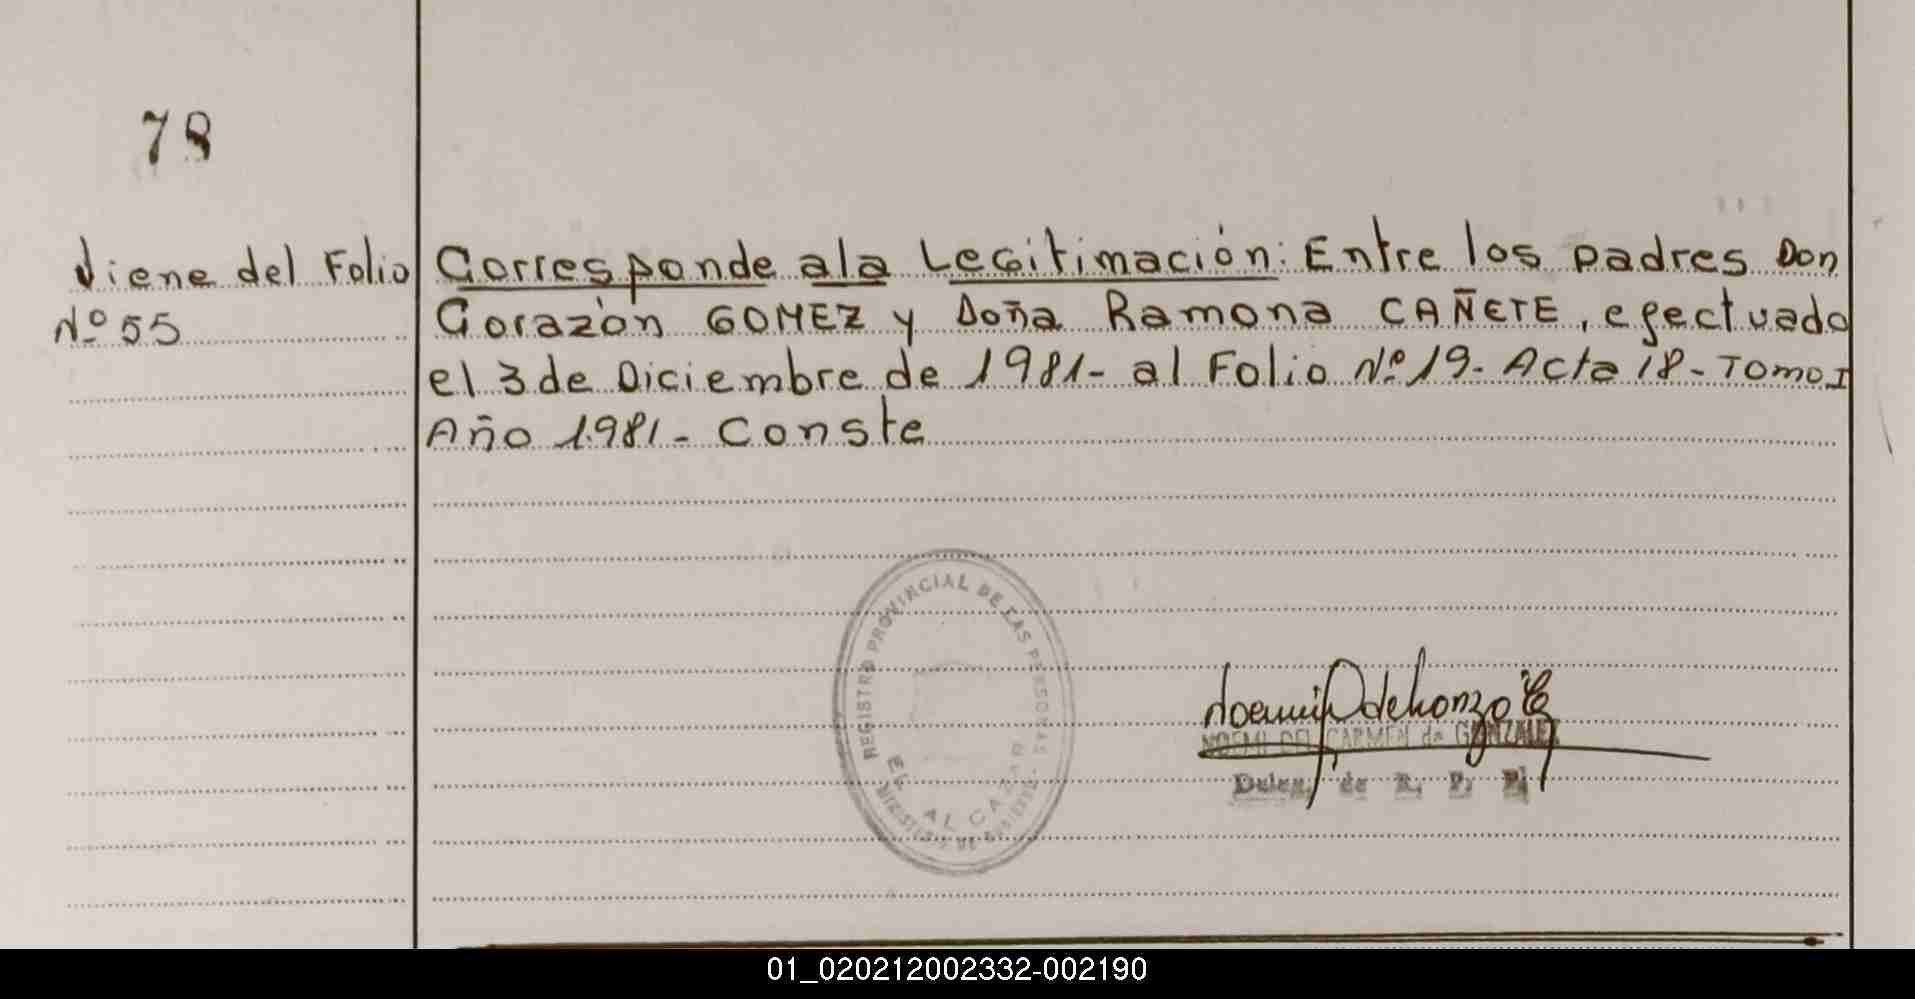 78
Viene del Folio
Nº 55
Corresponde a la Legitimación: Entre los padres Don
Corazón GOMEZ y Doña Ramona CAÑETE, efectuado
el 3 de Diciembre de 1981 - al Folio Nº 19 - Acta 18 - Tomo I
Año 1981 - Conste
REGISTRO PROVINCIAL DE LAS PERSONAS
EL ALCAZAR
MINISTERIO DE GOBIERNO
NOEMI DEL CARMEN de GONZALEZ
Deleg. de R. P. P.
01_020212002332-002190